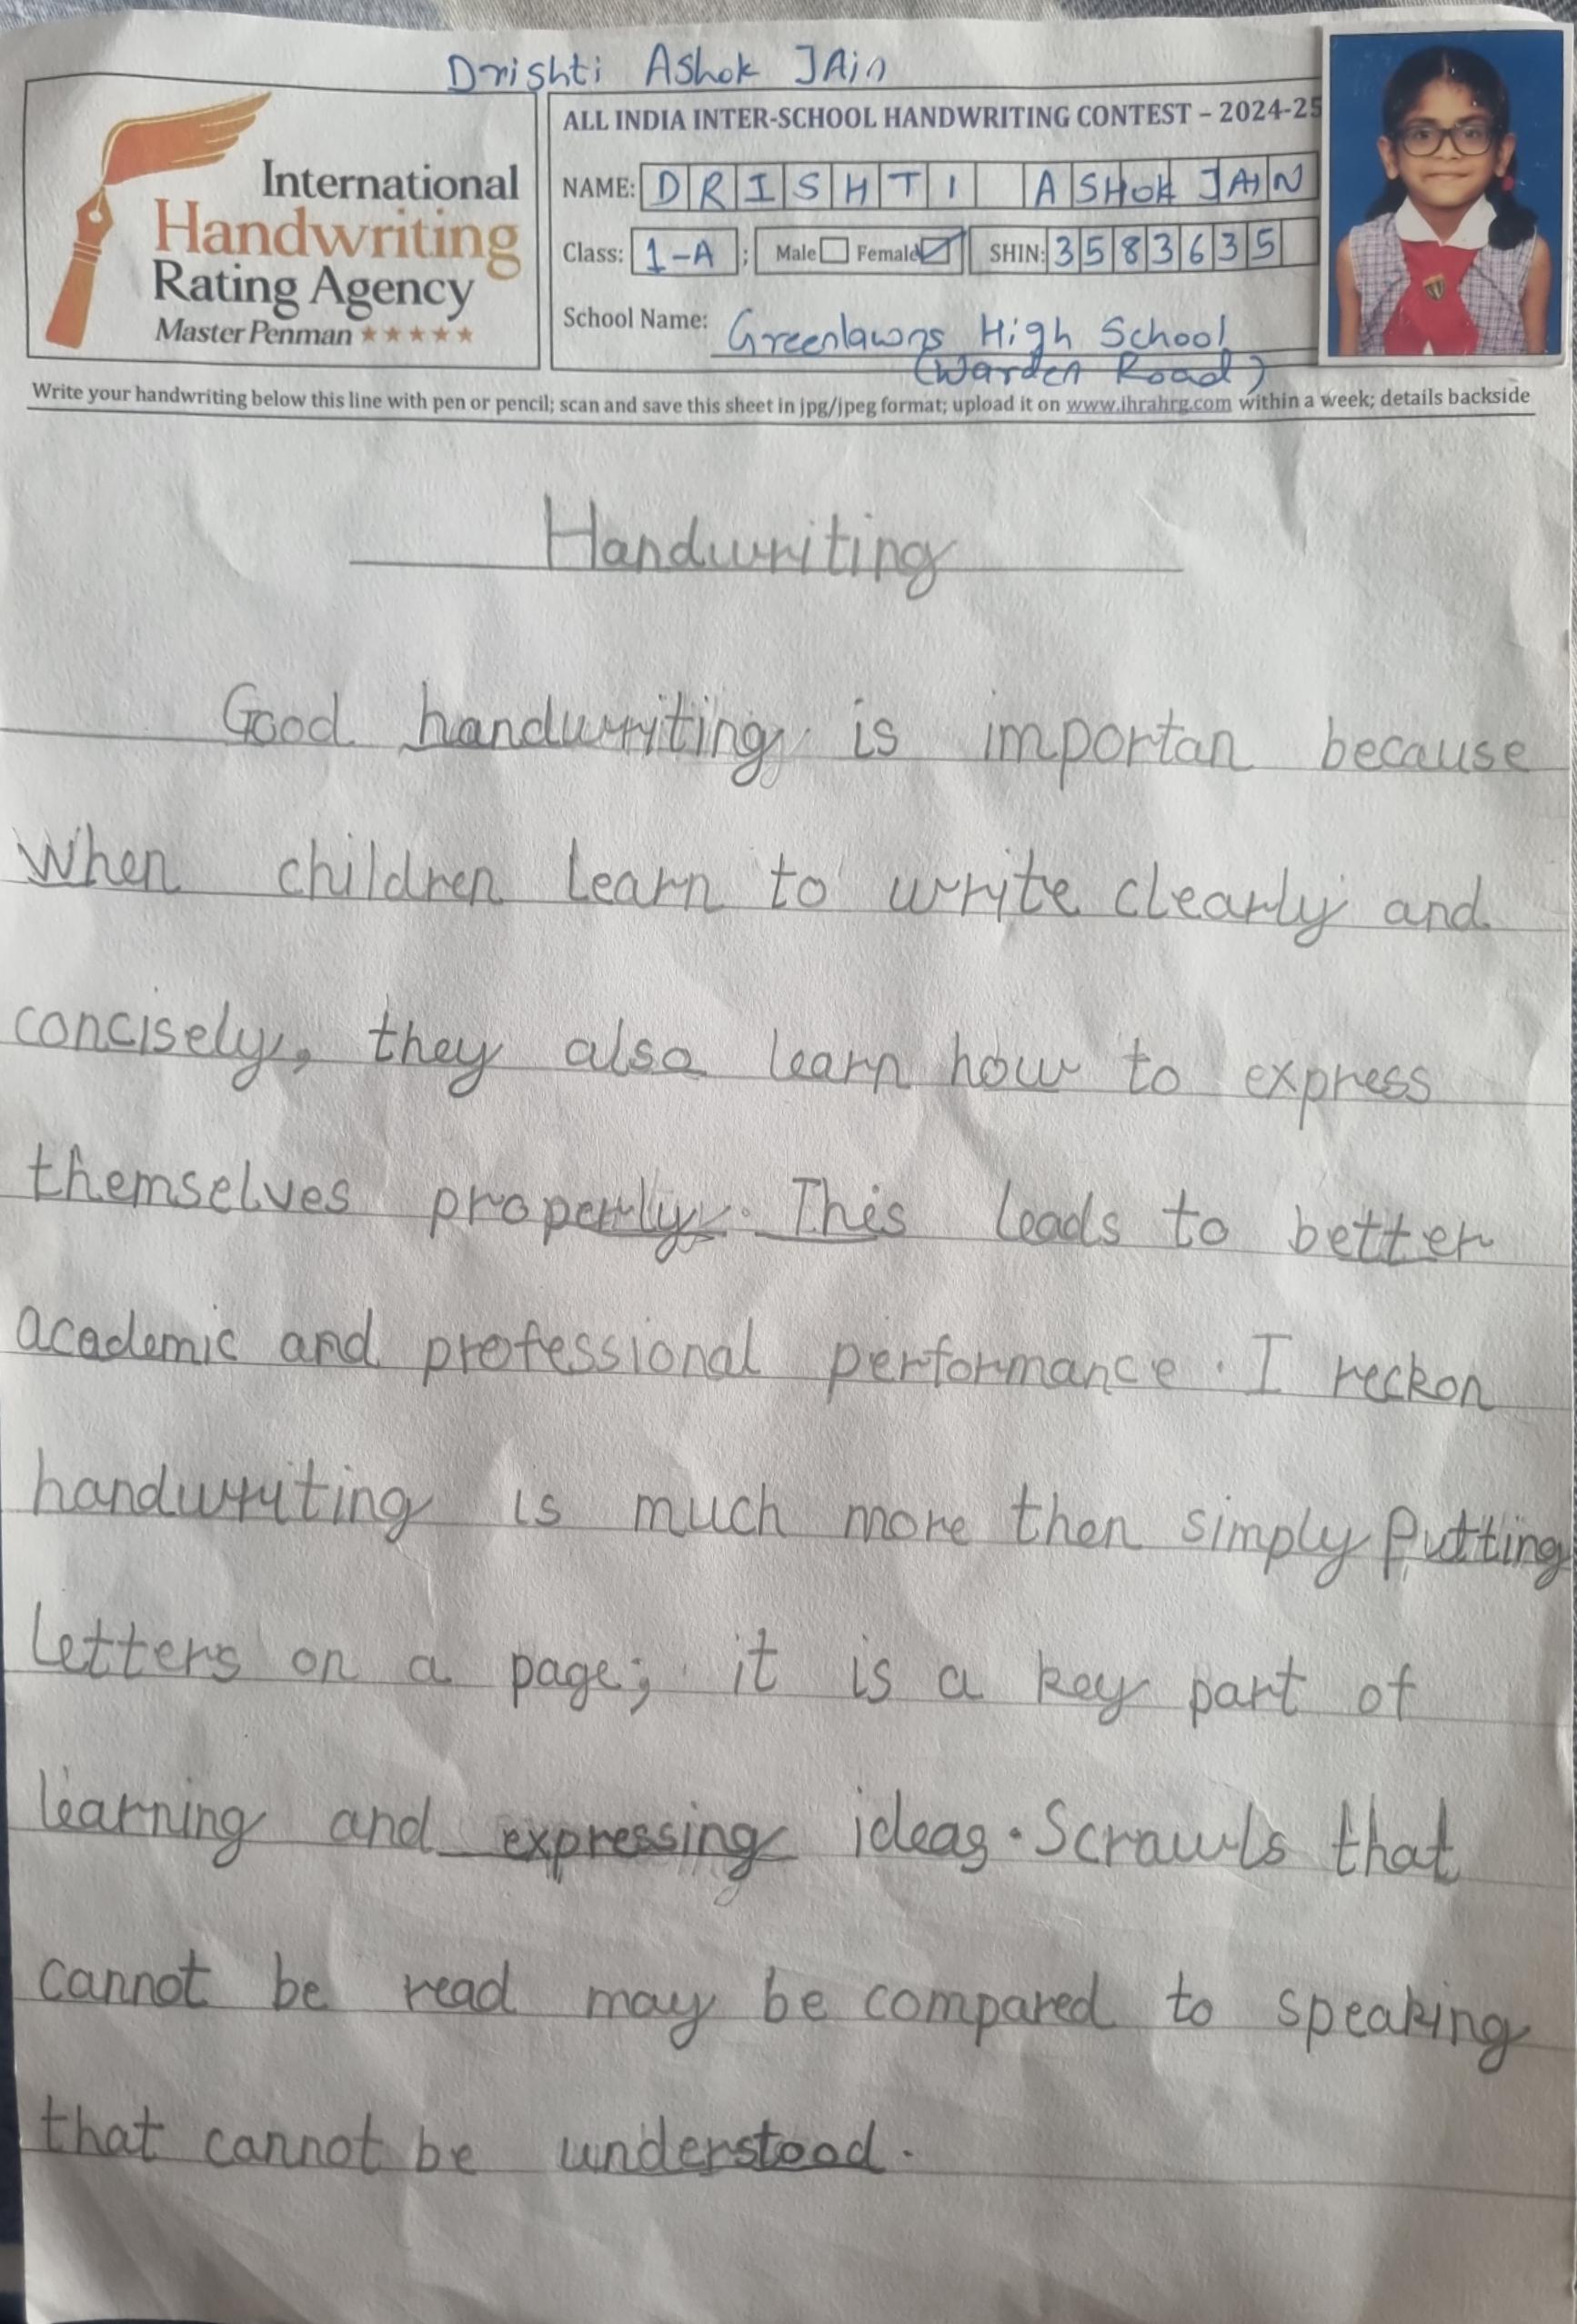 Drishti Ashok JAin
International
Handwriting
Rating Agency
Master Penman ★★★★★
ALL INDIA INTER-SCHOOL HANDWRITING CONTEST – 2024-25
NAME: DRISHTI ASHOK JAIN
Class: 1-A ; Male Female SHIN: 3583635
School Name: Greenlawns High School
(Warden Road)
Write your handwriting below this line with pen or pencil; scan and save this sheet in jpg/jpeg format; upload it on www.ihrahrg.com within a week; details backside
Handwriting
Good handwriting is importan because
When children learn to write clearly and
concisely, they also learn how to express
themselves properly. This leads to better
academic and professional performance. I reckon
handwriting is much more then simply Putting
letters on a page; it is a key part of
learning and expressing ideas. Scrawls that
cannot be read may be compared to speaking
that cannot be understood.